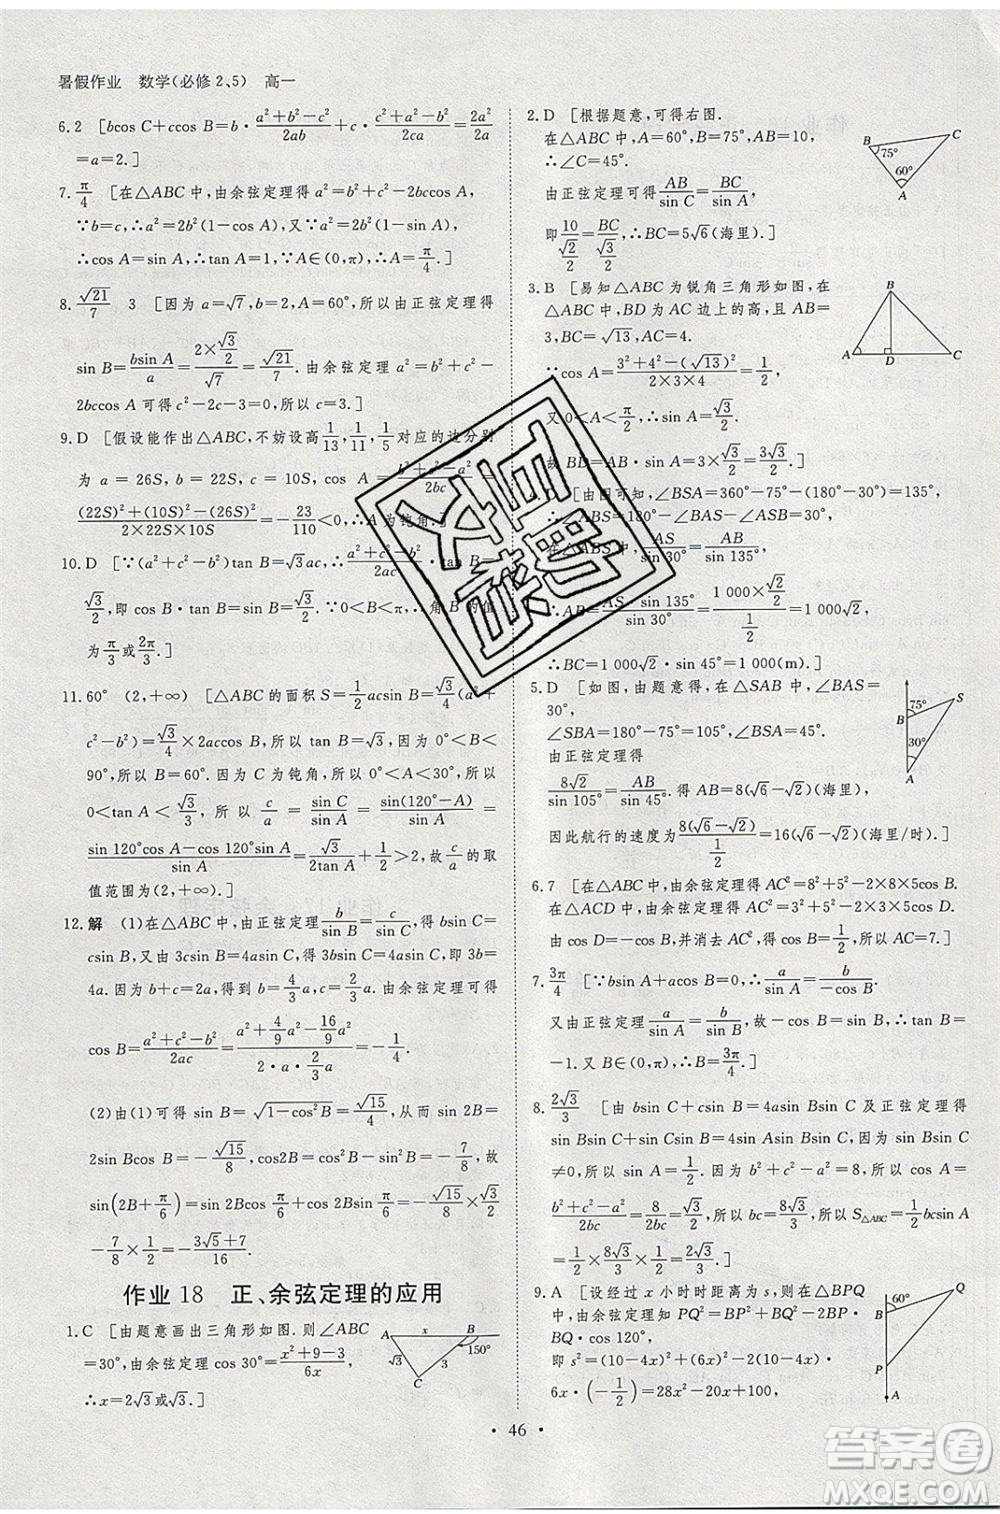 暑假作业　数学(必修2、5)　高一
6.2　[bcos C+ccos B=b·\frac{a²+b²-c²}{2ab}+c·\frac{a²+c²-b²}{2ca}=\frac{2a²}{2a}=
a=2.]
7.\frac{π}{4}　[在△ABC中,由余弦定理得a²=b²+c²-2bccos A,
∵b=c,∴a²=2b²(1-cos A),又∵a²=2b²(1-sin A),
∴cos A=sin A,∴tan A=1,∵A∈(0,π),∴A=\frac{π}{4}.]
8.\frac{√21}{7}　3　[因为a=√7,b=2,A=60°,所以由正弦定理得
sin B=\frac{bsin A}{a}=\frac{2×\frac{√3}{2}}{√7}=\frac{√21}{7}.由余弦定理a²=b²+c²-
2bccos A可得c²-2c-3=0,所以c=3.]
9.D　[假设能作出△ABC,不妨设高\frac{1}{13},\frac{1}{11},\frac{1}{5}对应的边分别
为a=26S,b=22S,c=10S,cos A=\frac{b²+c²-a²}{2bc}=
\frac{(22S)²+(10S)²-(26S)²}{2×22S×10S}=-\frac{23}{110}<0,∴A为钝角.]
10.D　[∵(a²+c²-b²)tan B=√3ac,∴\frac{a²+c²-b²}{2ac}·tan B=
\frac{√3}{2},即cos B·tan B=sin B=\frac{√3}{2}.∵0<B<π,∴角B的值
为\frac{π}{3}或\frac{2π}{3}.]
11.60°　(2,+∞)　[△ABC的面积S=\frac{1}{2}acsin B=\frac{√3}{4}(a²+
c²-b²)=\frac{√3}{4}×2accos B,所以tan B=√3,因为0°<B<
90°,所以B=60°.因为C为钝角,所以0°<A<30°,所以
0<tan A<\frac{√3}{3},所以\frac{c}{a}=\frac{sin C}{sin A}=\frac{sin(120°-A)}{sin A}=
\frac{sin 120°cos A-cos 120°sin A}{sin A}=\frac{√3}{2tan A}+\frac{1}{2}>2,故\frac{c}{a}的取
值范围为(2,+∞).]
12.解　(1)在△ABC中,由正弦定理\frac{b}{sin B}=\frac{c}{sin C},得bsin C=
csin B,又由3csin B=4asin C,得3bsin C=4asin C,即3b=
4a.又因为b+c=2a,得到b=\frac{4}{3}a,c=\frac{2}{3}a.由余弦定理可得
cos B=\frac{a²+c²-b²}{2ac}=\frac{a²+\frac{4}{9}a²-\frac{16}{9}a²}{2·a·\frac{2}{3}a}=-\frac{1}{4}.
(2)由(1)可得sin B=√(1-cos²B)=\frac{√15}{4},从而sin 2B=
2sin Bcos B=-\frac{√15}{8},cos2B=cos²B-sin²B=-\frac{7}{8},故
sin(2B+\frac{π}{6})=sin 2Bcos\frac{π}{6}+cos 2Bsin\frac{π}{6}=-\frac{√15}{8}×\frac{√3}{2}
-\frac{7}{8}×\frac{1}{2}=-\frac{3√5+7}{16}.
作业18　正、余弦定理的应用
1.C　[由题意画出三角形如图.则∠ABC
=30°,由余弦定理cos 30°=\frac{x²+9-3}{6x},
∴x=2√3或√3.]
A x B 150° √3 3 C
2.D　[根据题意,可得右图.
在△ABC中,A=60°,B=75°,AB=10,
∴∠C=45°.
由正弦定理可得\frac{AB}{sin C}=\frac{BC}{sin A},
即\frac{10}{\frac{√2}{2}}=\frac{BC}{\frac{√3}{2}},∴BC=5√6(海里).]
B 75° 60° A C
3.B　[易知△ABC为锐角三角形如图,在
△ABC中,BD为AC边上的高,且AB=
3,BC=√13,AC=4.
∵cos A=\frac{3²+4²-(√13)²}{2×3×4}=\frac{1}{2},
又0<A<\frac{π}{2},∴sin A=\frac{√3}{2}.
故BD=AB·sin A=3×\frac{√3}{2}=\frac{3√3}{2}.]
B A D C
[由图可知,∠BSA=360°-75°-(180°-30°)=135°,
在△ABS中,\frac{AS}{sin 30°}=\frac{AB}{sin 135°},
∴AB=\frac{AS·sin 135°}{sin 30°}=\frac{1 000×\frac{√2}{2}}{\frac{1}{2}}=1 000√2,
∴BC=1 000√2·sin 45°=1 000(m).]
5.D　[如图,由题意得,在△SAB中,∠BAS=
30°,
∠SBA=180°-75°=105°,∠BSA=45°.
由正弦定理得
\frac{8√2}{sin 105°}=\frac{AB}{sin 45°}.得AB=8(√6-√2)(海里),
因此航行的速度为\frac{8(√6-√2)}{\frac{1}{2}}=16(√6-√2)(海里/时).]
75° S B 30° A
6.7　[在△ABC中,由余弦定理得AC²=8²+5²-2×8×5×cos B.
在△ACD中,由余弦定理得AC²=3²+5²-2×3×5×
cos D.分离AC²得cos D=\frac{1}{2},所以AC=7.]
7.\frac{3π}{4}　[∵bsin A+acos B=0,∴\frac{a}{sin A}=\frac{b}{-cos B}.
又由正弦定理,得\frac{a}{sin A}=\frac{b}{sin B},故-cos B=sin B,tan B=
-1.又B∈(0,π),∴B=\frac{3π}{4}.]
8.\frac{2√3}{3}　[由bsin C+csin B=4asin Bsin C及正弦定理得
2sin Bsin C=4sin Asin Bsin C,因为sin B≠0,sin C
≠0,所以sin A=\frac{1}{2}.因为b²+c²-a²=8,所以cos A=
\frac{b²+c²-a²}{2bc}=\frac{8}{2bc}=\frac{√3}{2},所以bc=\frac{8√3}{3},所以S△ABC=\frac{1}{2}bcsin A
=\frac{1}{2}×\frac{8√3}{3}×\frac{1}{2}=\frac{2√3}{3}.]
9.A　[设经过x小时时距离为s,则在△BPQ
中,由余弦定理知PQ²=BP²+BQ²-2BP·
BQ·cos 120°,
即s²=(10-4x)²+(6x)²-2(10-4x)·
6x·(-\frac{1}{2})=28x²-20x+100,
60° Q B P A
• 46 •
答案卷
MXQE.COM